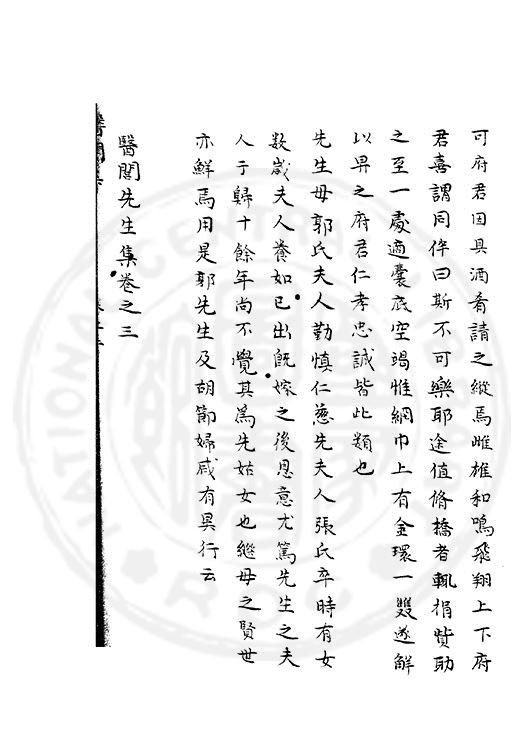 可府君因具酒肴請之縱焉雌雄和鳴飛翔上下府
君喜謂同伴曰斯不可樂耶途值脩橋者輒捐貲助
之至一處適囊底空竭惟網巾上有金環一雙遂解
以畀之府君仁孝忠誠皆此類也
先生母郭氏夫人勤慎仁慈先夫人張氏卒時有女
数歲夫人養如已出既嫁之後恩意尤篤先生之夫
人于歸十餘年尚不覺其爲先姑女也繼母之賢世
亦鮮焉用是郭先生及胡節婦咸有異行云
醫閭先生集卷之三